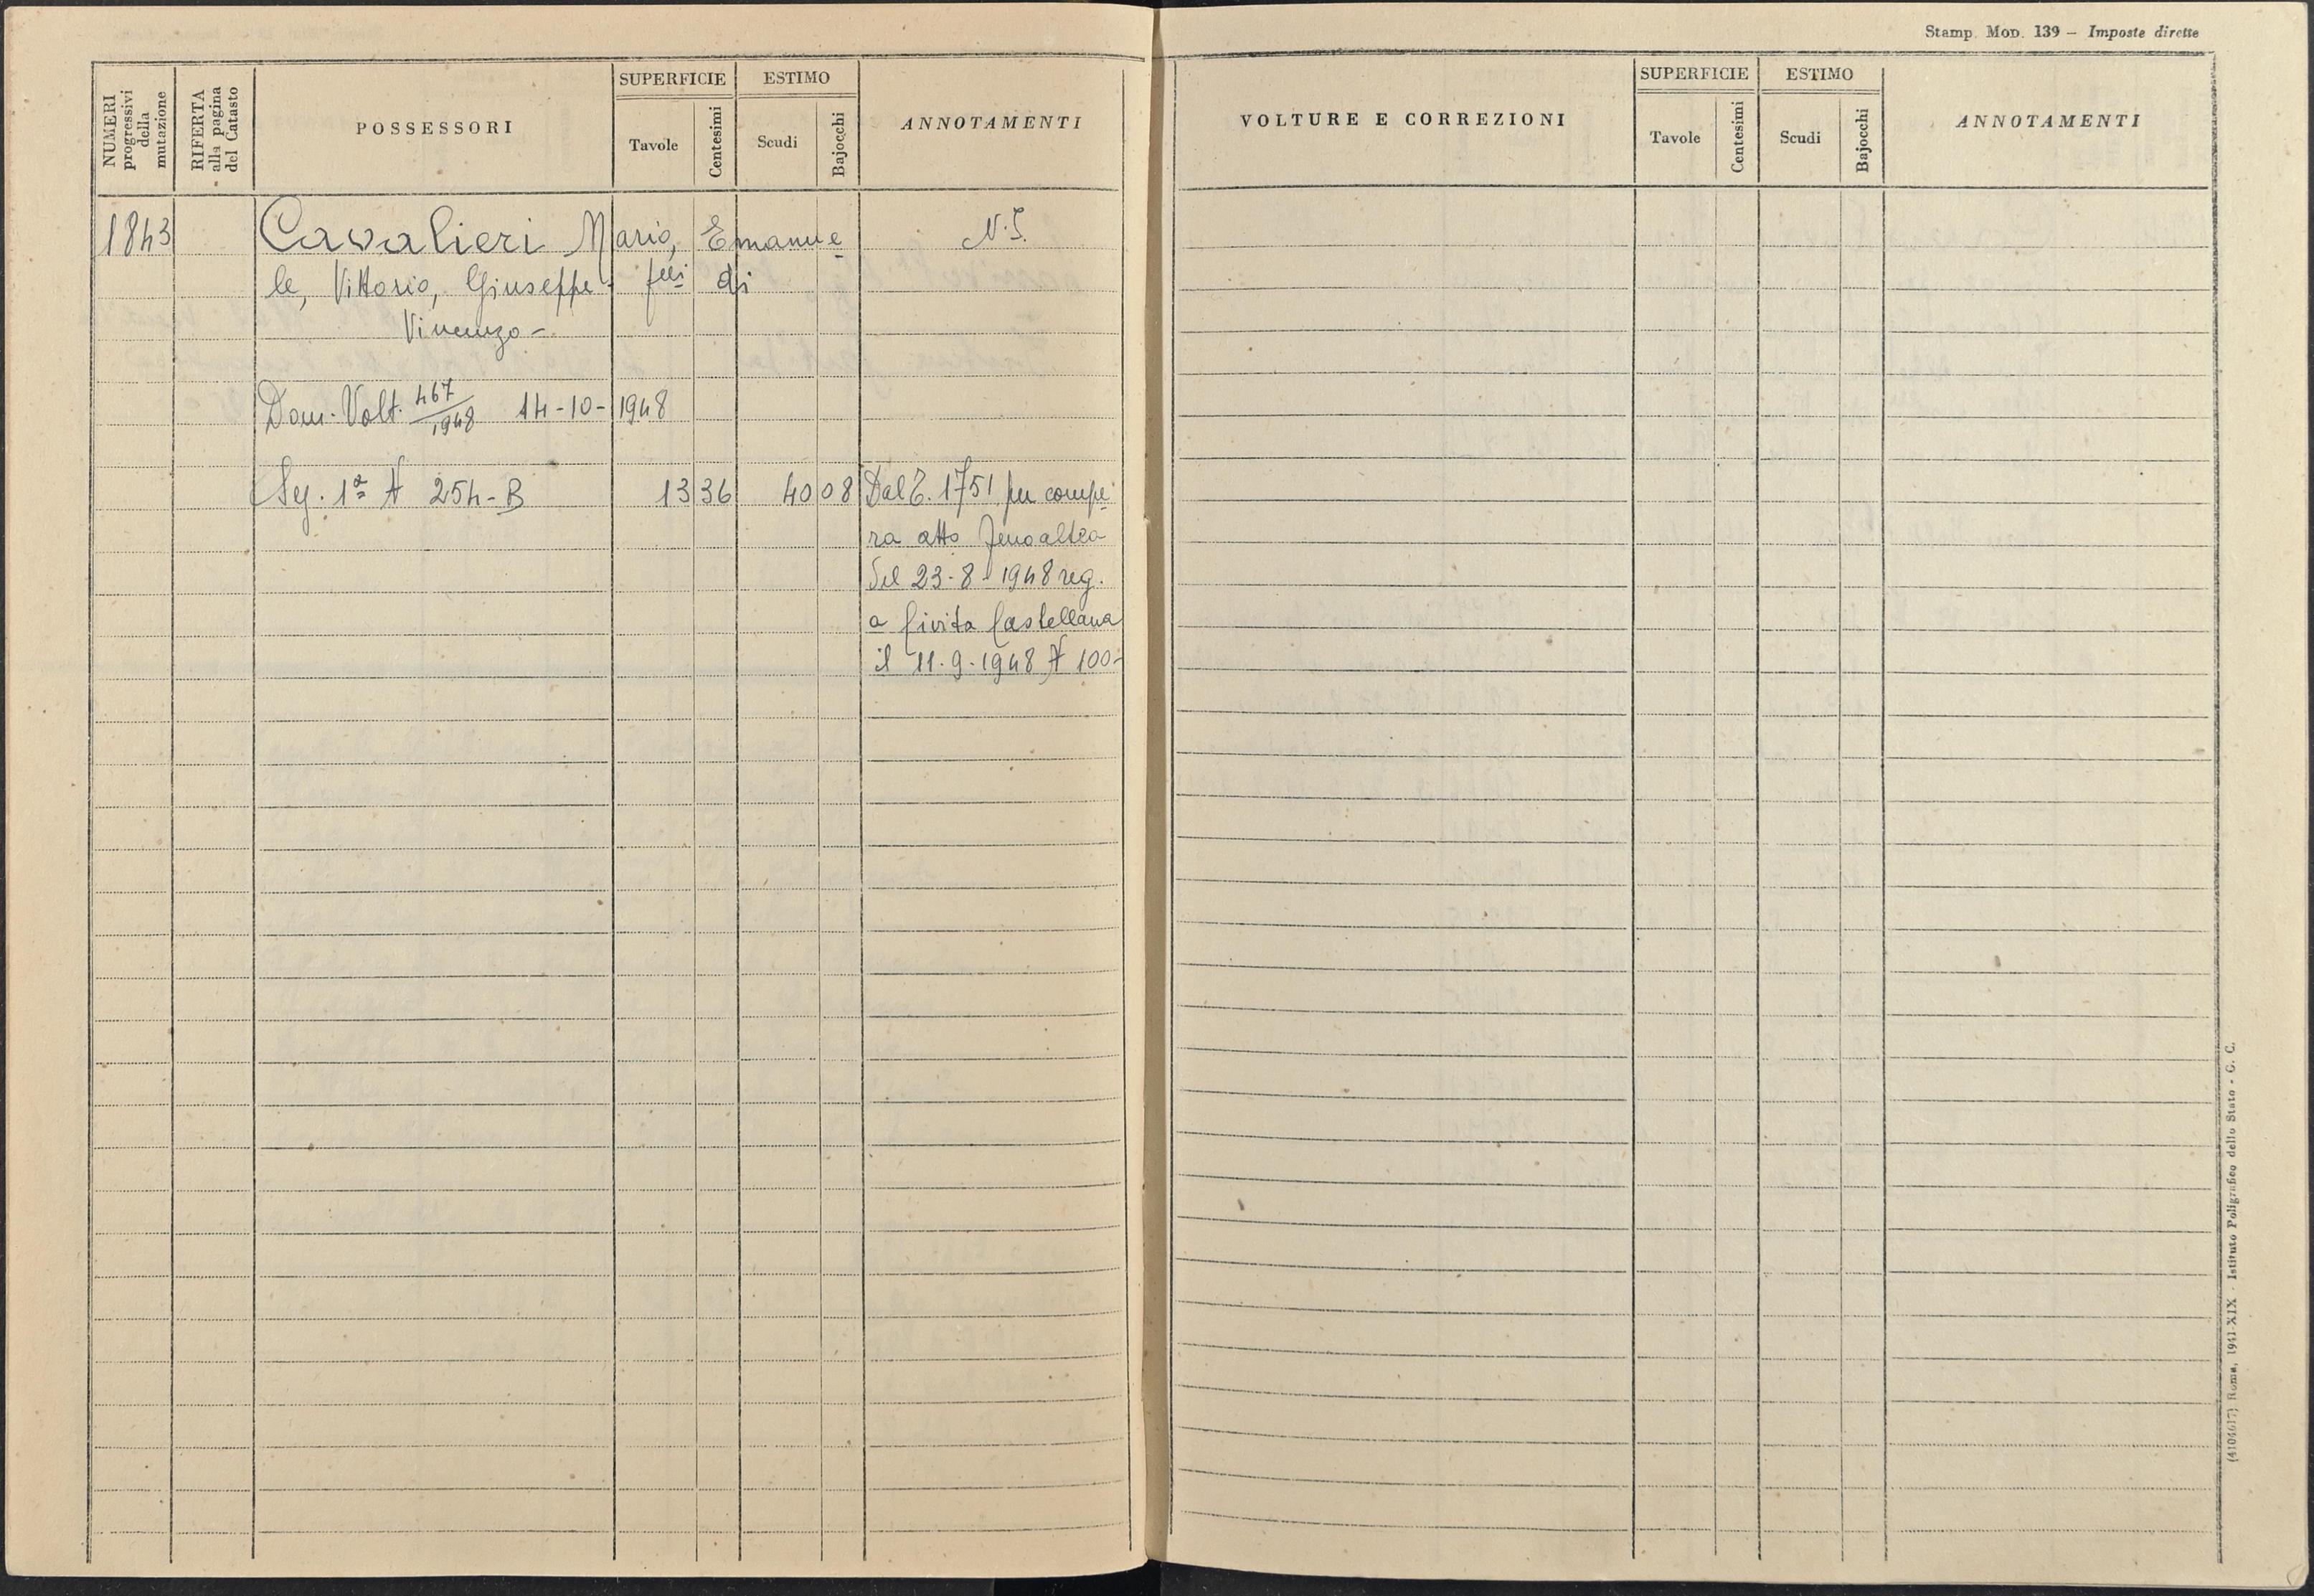 Stamp. Mod. 139 – Imposte dirette
NUMERI progressivi della mutazione
RIFERTA alla pagina del Catasto
POSSESSORI
SUPERFICIE
Tavole
Centesimi
ESTIMO
Scudi
Bajocchi
ANNOTAMENTI
1843 Cavalieri Mario, Emanue
le, Vittorio, Giuseppe flli di
Vincenzo -
Dom. Volt. 467/1948 14-10-1948
254-B 13 36 40 08 Dal C. 1751 per compe
ra atto Fenoaltea
del 23-8-1948 reg.
a Civita Castellana
il 11-9-1948 N 100-
VOLTURE E CORREZIONI
SUPERFICIE
Tavole
Centesimi
ESTIMO
Scudi
Bajocchi
ANNOTAMENTI
(4104617) Roma, 1941-XIX - Istituto Poligrafico dello Stato - G. C.